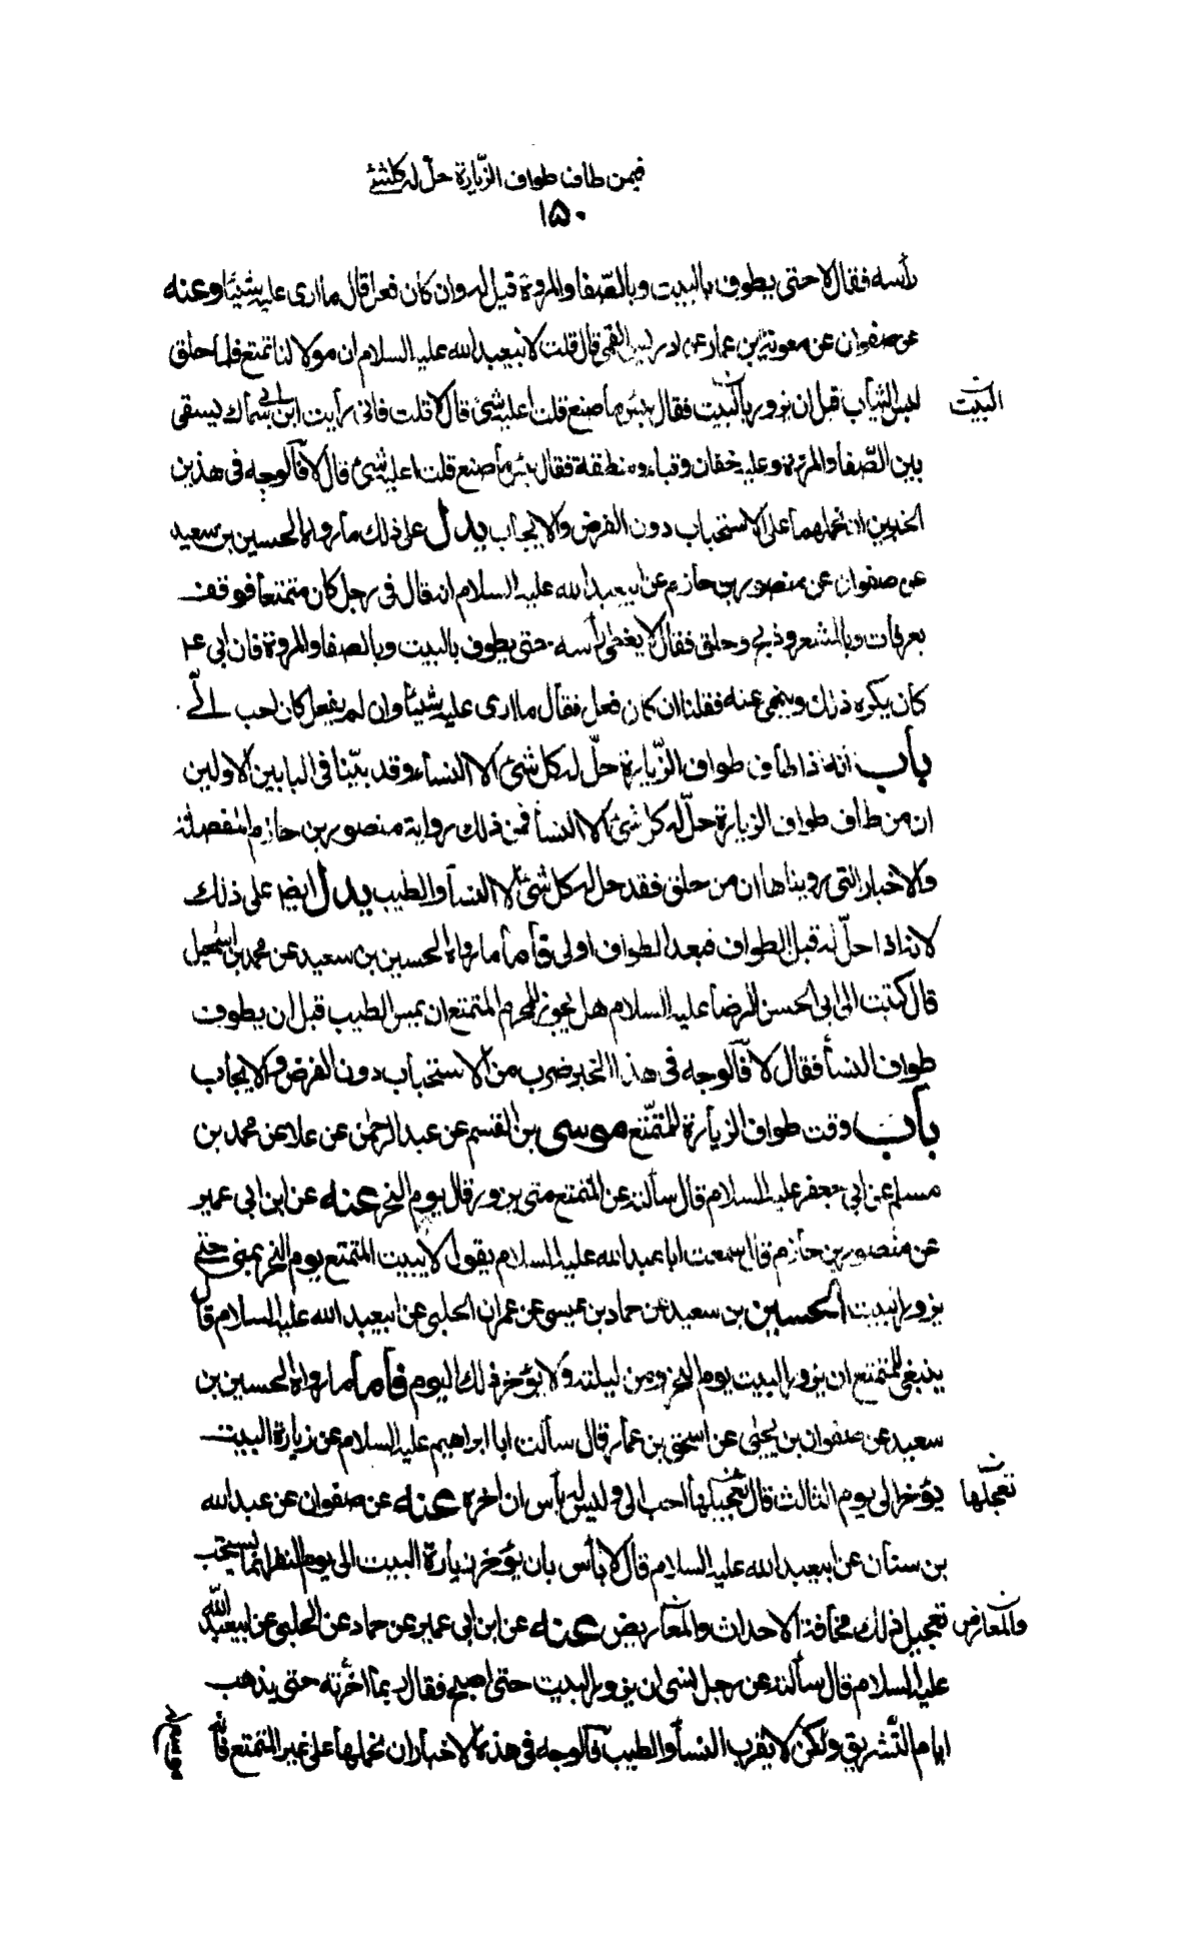 فيمن طاف طواف الزّيارة حلّ له كلشئ
١٥٠
رأسه فقال لا حتى يطوف بالبيت وبالصّفا والمروة قيل له وان كان فعل قال ما ارى عليه شيئا وعنه
عن صفوان عن معوية بن عمار عن ادريس القمى قال قلت لابيعبد الله عليه السلام ان مولا لنا تمتع فلما حلق
لبس الثياب قبل ان يزور بالبيت فقال بئس ما صنع قلت اعليه شئ قال لا قلت فانى رأيت ابن ابى سماك يسقى
البيت
بين الصّفا والمروة وعليه خفان وقباء ومنطقة فقال بئس ما صنع قلت اعليه شئ قال لا فالوجه فى هذين
الخبرين ان نحملهما على الاستحباب دون الفرض والايجاب يدل على ذلك ما رواه الحسين بن سعيد
عن صفوان عن منصور بن حازم عن ابيعبد الله عليه السلام انه قال فى رجل كان متمتعا فوقف
بعرفات وبالمشعر وذبح وحلق فقال لا يغطى رأسه حتى يطوف بالبيت وبالصفا والمروة فان ابى ع
كان يكره ذلك وينهى عنه فقلنا ان كان فعل فقال ما ارى عليه شيئا وان لم يفعل كان احب الىّ
باب انه اذا طاف طواف الزّيارة حلّ له كل شئ الا النساء وقد بيّنا فى البابين الاولين
ان من طاف طواف الزيارة حلّ له كل شئ الا النسأ فمن ذلك رواية منصور بن حازم المفصلة
والاخبار التى رويناها ان من حلق فقد حل له كل شئ الا النسأ والطيب يدل ايضا على ذلك
لانه اذا حلّ له قبل الطواف فبعد الطواف اولى فأما ما رواه الحسين بن سعيد عن محمد بن اسمعيل
قال كتبت الى ابى الحسن الرضا عليه السلام هل يجوز للمحرم المتمتع ان يمس الطيب قبل ان يطوف
طواف النسأ فقال لا فالوجه فى هذا الخبر ضرب من الاستحباب دون الفرض والايجاب
باب وقت طواف الزيارة للمتمّتع موسى بن القسم عن عبد الرحمن عن علا عن محمد بن
مسلم عن ابى جعفر عليه السلام قال سألته عن المتمتع متى يزور قال يوم النحر عنه عن ابن ابى عمير
عن منصور بن حازم قال سمعت ابا عبد الله عليه السلام يقول لا يبيت المتمتع يوم النحر بمنى حتى
يزور البيت الحسين بن سعيد عن حماد بن عيسى عن عمران الحلبى عن ابيعبد الله عليه السلام قال
ينبغى للمتمتع ان يزور البيت يوم النحر ومن ليلته ولا يؤخر ذلك اليوم فأما ما رواه الحسين بن
سعيد عن صفوان بن يحيى عن اسحق بن عمار قال سألت ابا ابراهيم عليه السلام عن زيارة البيت
يؤخر الى يوم الثالث قال تعجيلها احب الى وليس به بأس ان اخره عنه عن صفوان عن عبد الله
تعجلها
بن سنان عن ابيعبد الله عليه السلام قال لا بأس بان يؤخر زيارة البيت الى يوم النفر انما يستحب
تعجيل ذلك مخافة الاحداث والمعاريض عنه عن ابن ابى عمير عن حماد عن الحلبى عن ابيعبد الله
والمعارض
عليه السلام قال سألته عن رجل نسى ان يزور البيت حتى اصبح فقال ربما اخّرته حتى يذهب
ايام التّشريق ولكن لا يقرب النسأ والطيب فالوجه فى هذه الاخبار ان نحملها على غير المتمتع فأنّه